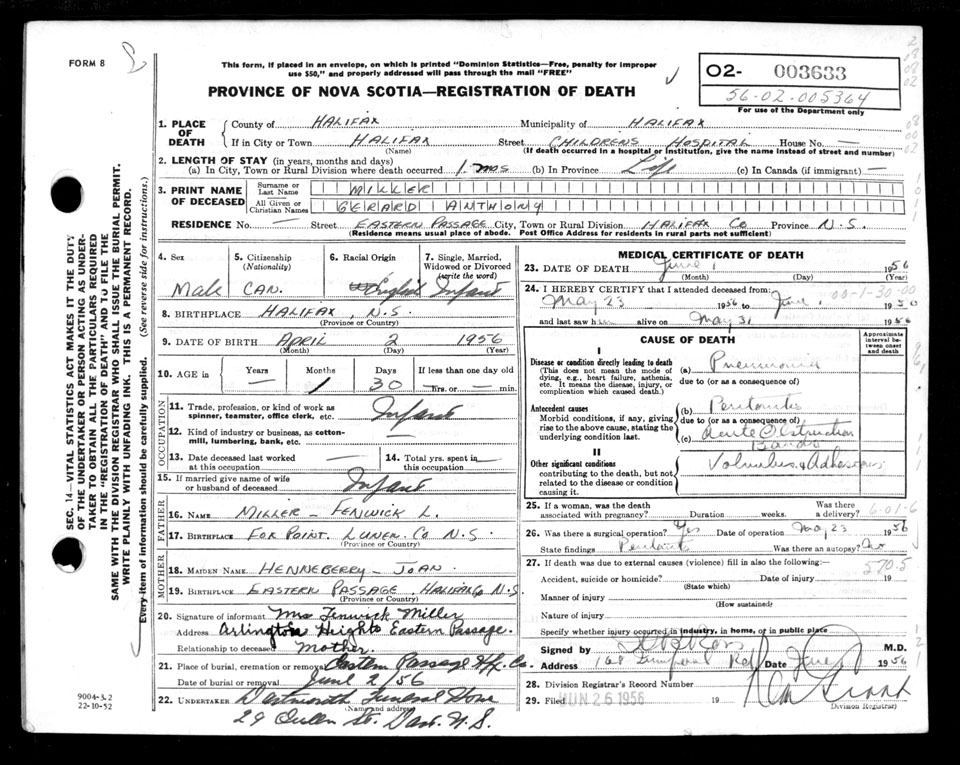 FORM 8
This form, if placed in an envelope, on which is printed "Dominion Statistics—Free, penalty for improper
use $50," and properly addressed will pass through the mail "FREE"
PROVINCE OF NOVA SCOTIA—REGISTRATION OF DEATH
02- 003633
56-02-005364
For use of the Department only
1. PLACE OF DEATH
County of HALIFAX Municipality of HALIFAX
If in City or Town HALIFAX Street CHILDRENS HOSPITAL House No. —
(Name) (If death occurred in a hospital or institution, give the name instead of street and number)
2. LENGTH OF STAY (in years, months and days)
(a) In City, Town or Rural Division where death occurred 1 mos (b) In Province Life (c) In Canada (if immigrant) —
3. PRINT NAME OF DECEASED
Surname or Last Name MILLER
All Given or Christian Names GERARD ANTHONY
RESIDENCE No. — Street EASTERN PASSAGE City, Town or Rural Division HALIFAX Co Province N.S.
(Residence means usual place of abode. Post Office Address for residents in rural parts not sufficient)
4. Sex
Male
5. Citizenship
(Nationality)
CAN.
6. Racial Origin
English
7. Single, Married, Widowed or Divorced
(write the word)
Infant
8. BIRTHPLACE HALIFAX, N.S.
(Province or Country)
9. DATE OF BIRTH APRIL 2 1956
(Month) (Day) (Year)
10. AGE in
Years Months Days If less than one day old
— 1 30 hrs. or — min.
OCCUPATION
11. Trade, profession, or kind of work as
spinner, teamster, office clerk, etc. Infant
12. Kind of industry or business, as cotton-
mill, lumbering, bank, etc. —
13. Date deceased last worked
at this occupation —
14. Total yrs. spent in
this occupation —
15. If married give name of wife
or husband of deceased Infant
FATHER
16. NAME MILLER – FENWICK L.
17. BIRTHPLACE FOX POINT. LUNEN. Co N.S.
(Province or Country)
MOTHER
18. MAIDEN NAME HENNEBERRY – JOAN
19. BIRTHPLACE EASTERN PASSAGE HALIFAX Co N.S.
(Province or Country)
20. Signature of informant Mrs Fenwick Miller
Address Arlington Heights Eastern Passage.
Relationship to deceased Mother.
21. Place of burial, cremation or removal Eastern Passage Hfx. Co.
Date of burial or removal June 2/56
22. UNDERTAKER Dartmouth Funeral Home
(Name and address)
29 Queen St. Dart. N.S.
MEDICAL CERTIFICATE OF DEATH
23. DATE OF DEATH June 1 1956
(Month) (Day) (Year)
24. I HEREBY CERTIFY that I attended deceased from:
May 23 1956 to June 1 1956
and last saw him alive on May 31 1956
CAUSE OF DEATH
Approximate interval between onset and death
I
Disease or condition directly leading to death
(This does not mean the mode of dying, e.g., heart failure, asthenia, etc. It means the disease, injury, or complication which caused death.)
(a) Pneumonia
due to (or as a consequence of)
Antecedent causes
Morbid conditions, if any, giving rise to the above cause, stating the underlying condition last.
(b) Peritonitis
due to (or as a consequence of)
(c) Acute Obstruction
Bands
II
Other significant conditions
contributing to the death, but not related to the disease or condition causing it.
Volvulus & Adhesions
25. If a woman, was the death
associated with pregnancy? Duration weeks.
Was there
a delivery?
26. Was there a surgical operation? Yes Date of operation May 23 1956
State findings Was there an autopsy? No
27. If death was due to external causes (violence) fill in also the following:—
570.5
Accident, suicide or homicide? Date of injury 19
(State which)
Manner of injury
(How sustained)
Nature of injury
Specify whether injury occurred in industry, in home, or in public place
Signed by M.D.
Address 168 Date June 1956
28. Division Registrar's Record Number
29. Filed JUN 26 1956 19
Division Registrar)
SEC. 14—VITAL STATISTICS ACT MAKES IT THE DUTY
OF THE UNDERTAKER OR PERSON ACTING AS UNDER-
TAKER TO OBTAIN ALL THE PARTICULARS REQUIRED
IN THE "REGISTRATION OF DEATH" AND TO FILE THE
SAME WITH THE DIVISION REGISTRAR WHO SHALL ISSUE THE BURIAL PERMIT.
WRITE PLAINLY WITH UNFADING INK. THIS IS A PERMANENT RECORD.
Every item of information should be carefully supplied. (See reverse side for instructions.)
9004-3.2
22-10-52